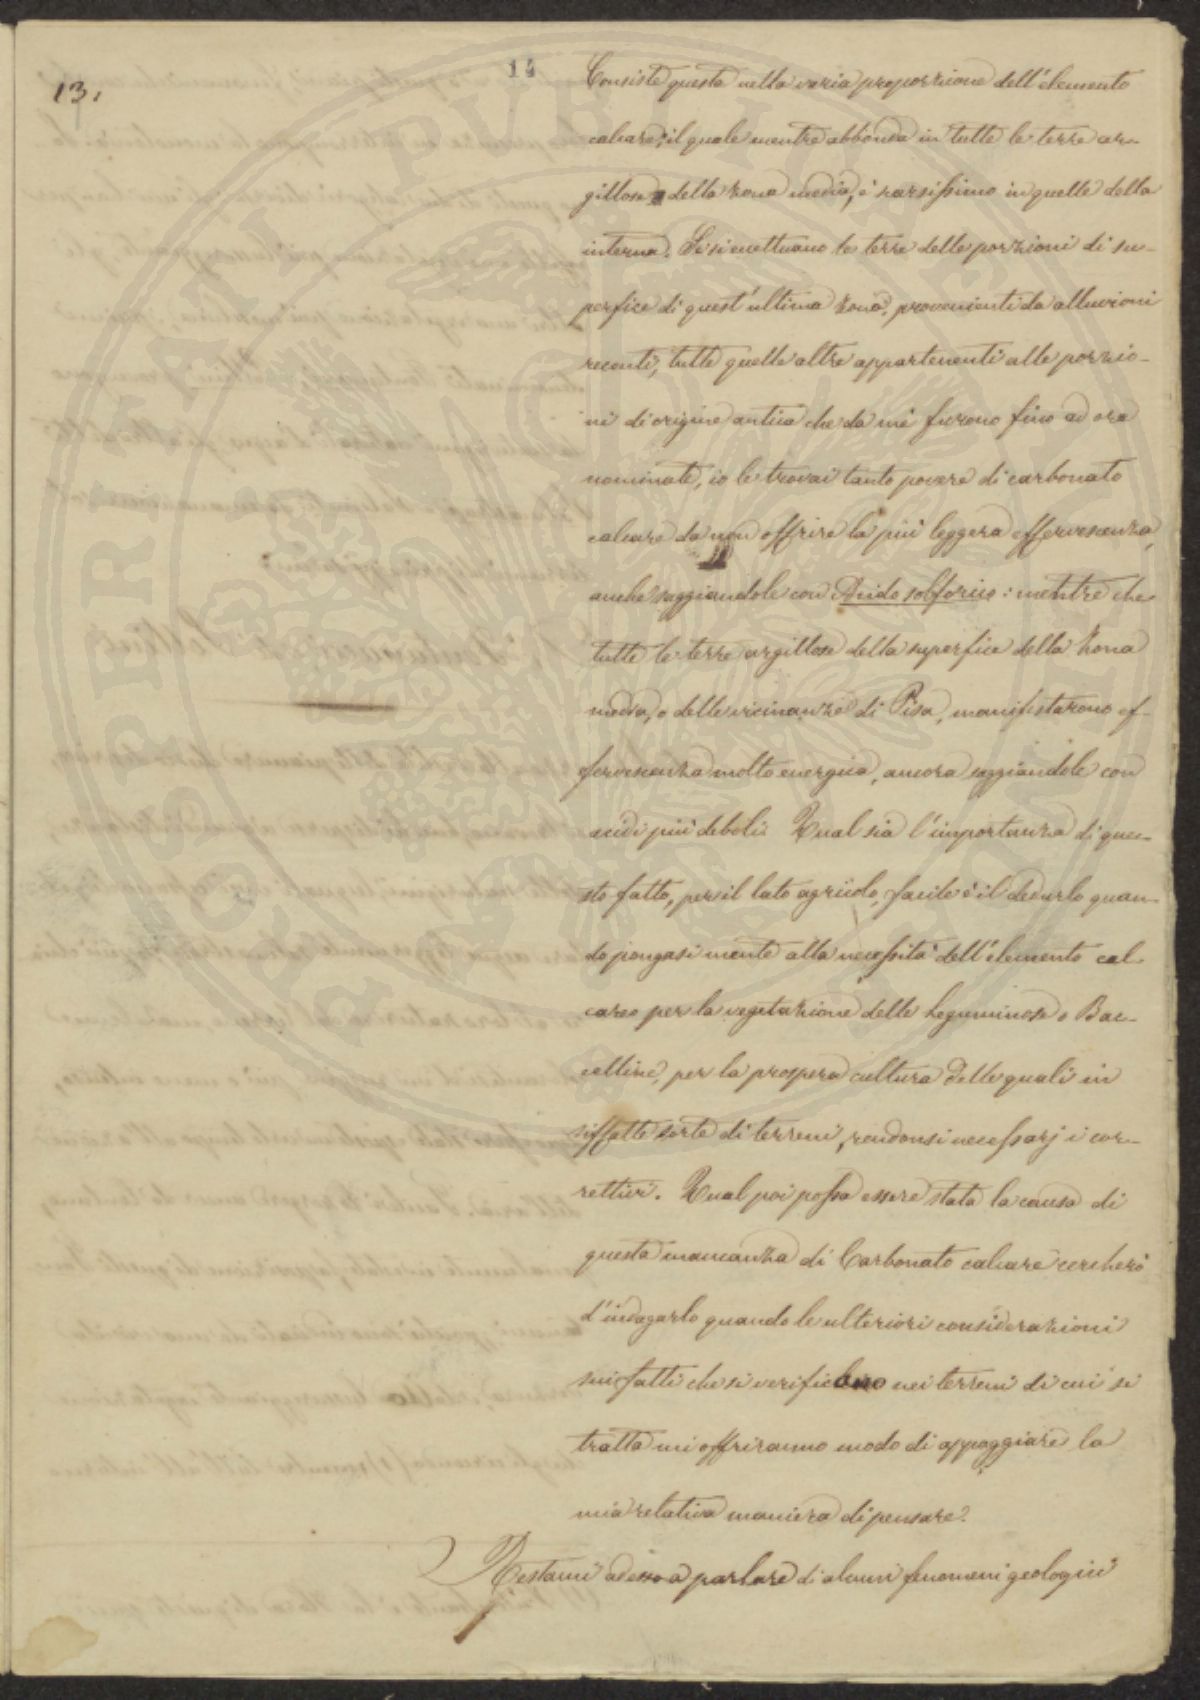 13.
14
Consiste questa nella varia proporzione dell'elemento
calcare; il quale mentre abbonda in tutte le terre ar-
gillose della zona media, è scarsissimo in quelle della
interna. Se si eccettuano le terre delle porzioni di su-
perfice di quest'ultima zona, provenienti da alluvioni
recenti, tutte quelle altre appartenenti alle porzio-
ni di origine antica che da me furono fino ad ora
nominate, io le trovai tanto povere di carbonato
calcare da non offrire la più leggera effervescenza,
anche saggiandole con Acido solforico: mentre che
tutte le terre argillose della superfice della zona
media, o delle vicinanze di Pisa, manifestarono ef-
fervescenza molto energica, ancora saggiandole con
acidi più deboli. Qual sia l'importanza di que-
sto fatto, per il lato agricolo, facile è il dedurlo quan-
do pongasi mente alla necessità dell'elemento cal-
careo per la vegetazione delle Leguminose o Bac-
celline, per la prospera cultura delle quali in
siffatte sorte di terreni, rendonsi necessarj i cor-
rettivi. Qual poi possa essere stata la causa di
questa mancanza di Carbonato calcare cercherò
d'indagarlo quando le ulteriori considerazioni
sui fatti che si verificano nei terreni di cui si
tratta mi offriranno modo di appoggiare la
mia relativa maniera di pensare.
Restami adesso a parlare di alcuni fenomeni geologici